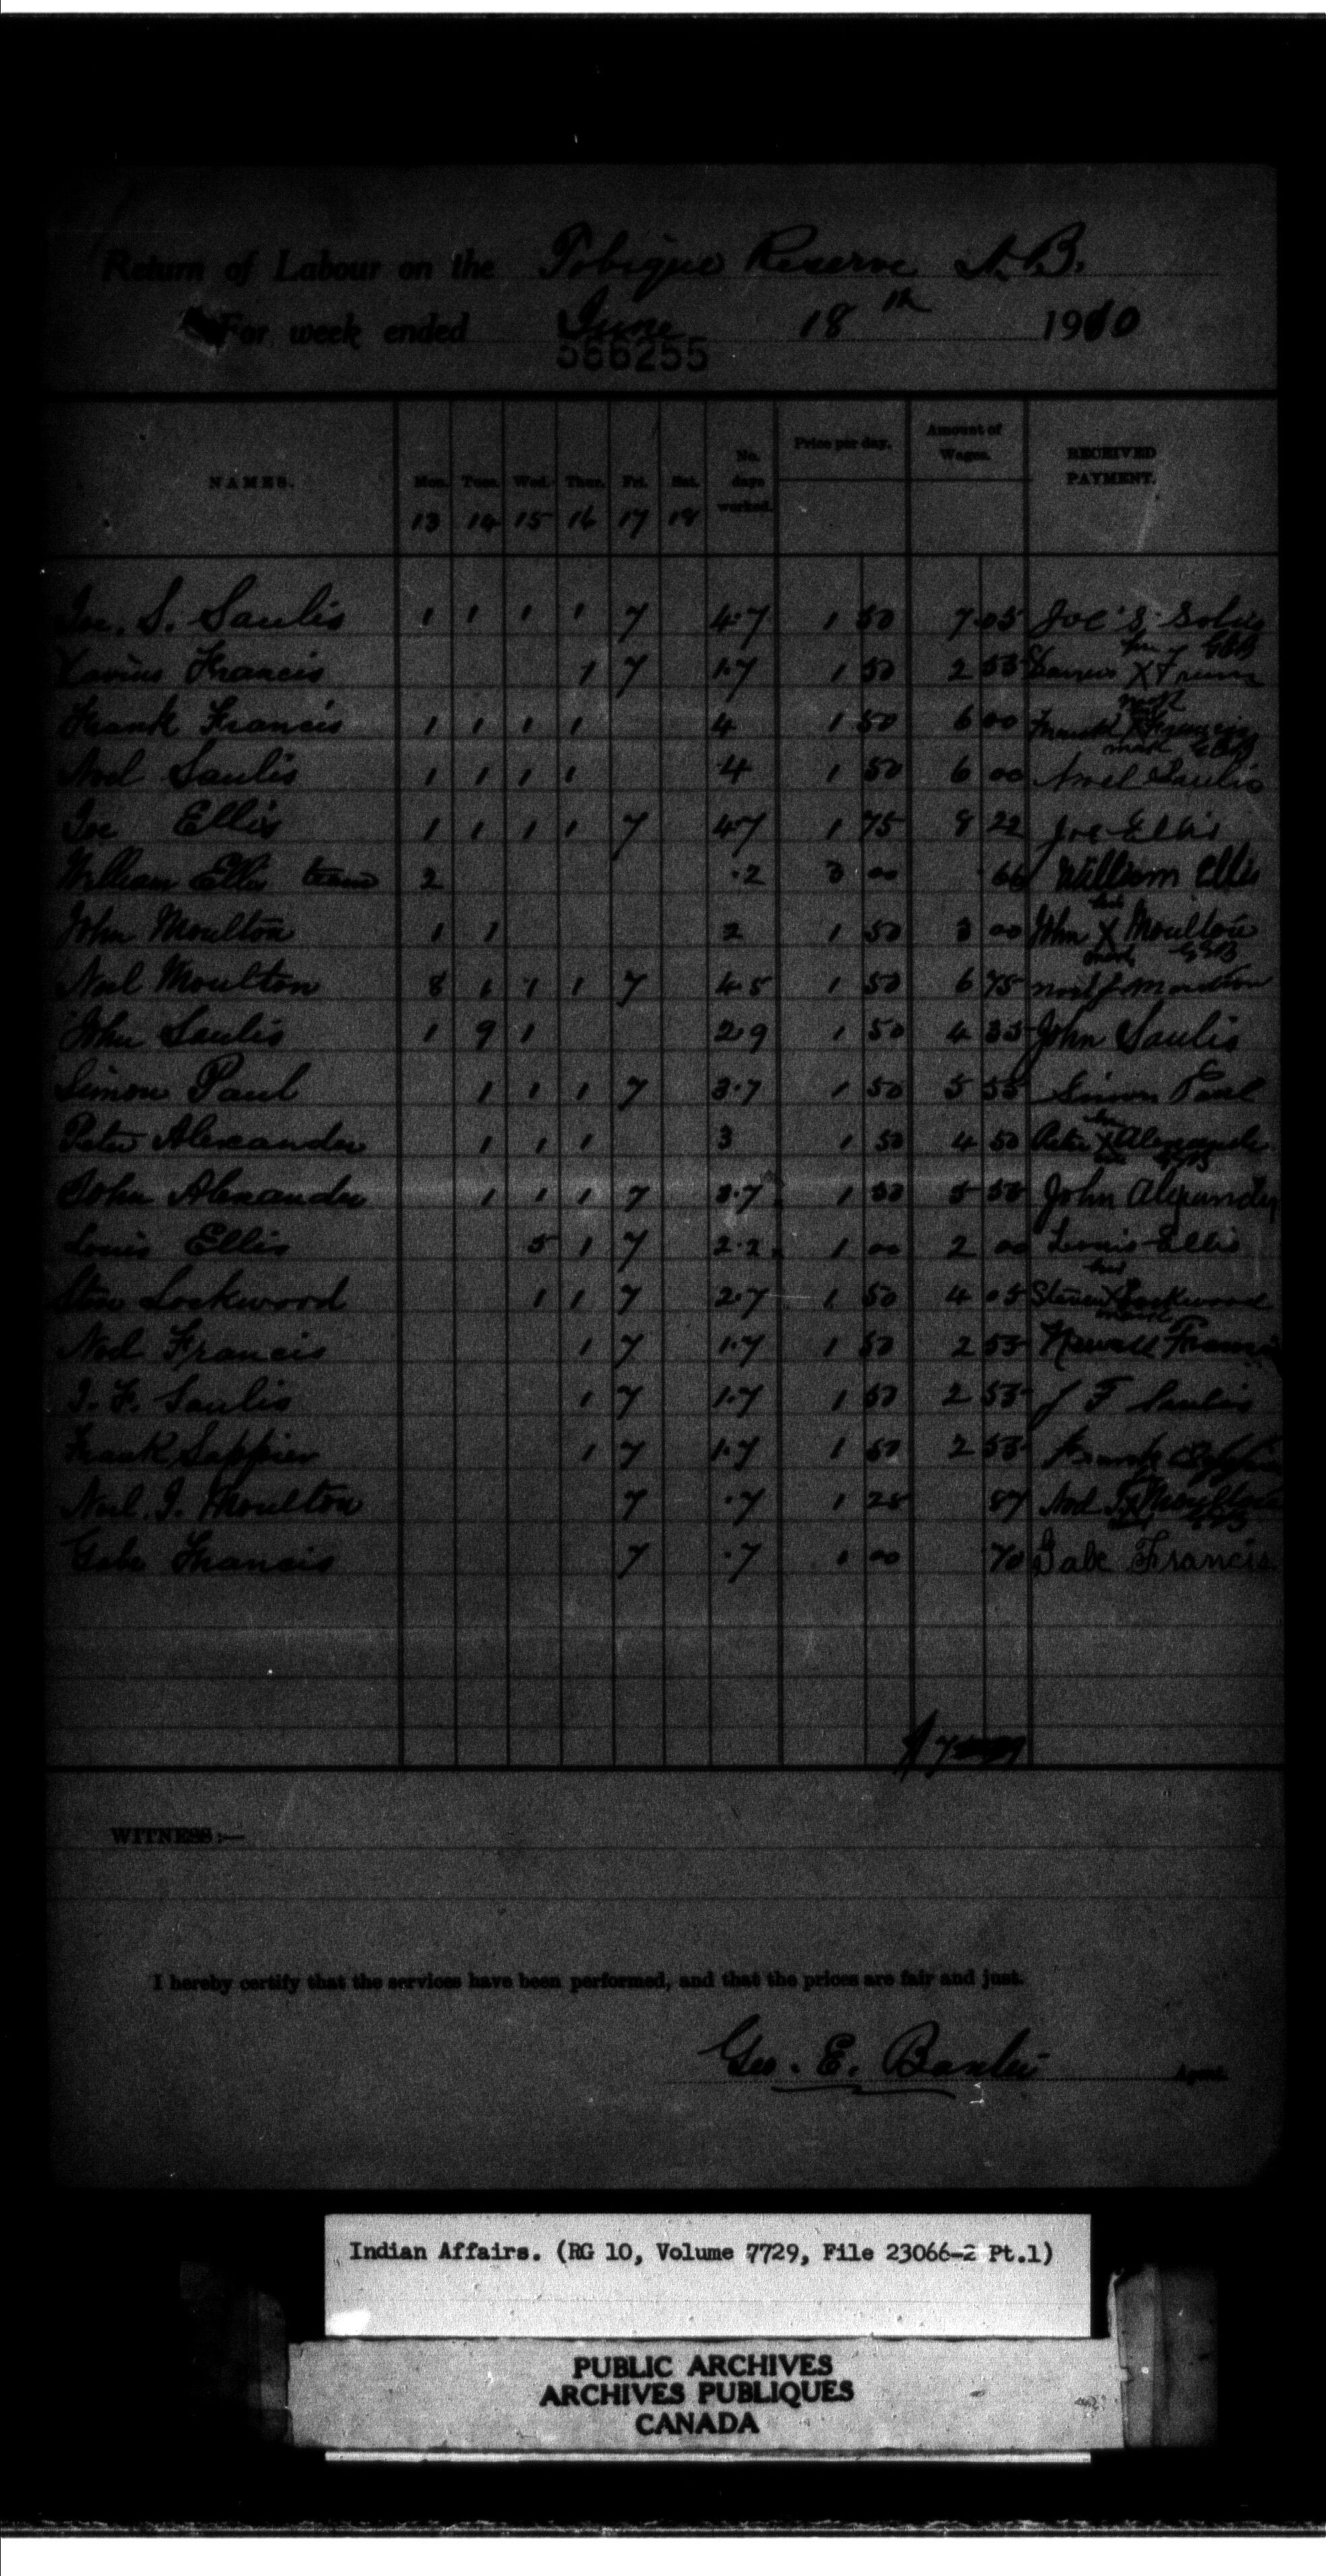 Return of Labour on the Tobique Reserve N.B.
For week ended June 18th 1910
566255
NAMES. Mon. Tues. Wed. Thur. Fri. Sat. No. days worked. Price per day. Amount of Wages. RECEIVED PAYMENT.
13 14 15 16 17 18
Joe. S. Saulis 1 1 1 1 7 4.7 1 50 7 05 Joe S. Solis
Francis 1 7 1.7 1 50 2 55 X
Frank Francis 1 1 1 1 4 1 50 6 00 Frank X Francis
mark GEB
Noel Saulis 1 1 1 1 4 1 50 6 00 Noel Saulis
Joe Ellis 1 1 1 1 7 4.7 1 75 8 22 Joe Ellis
William Ellis team 2 .2 3 00 .66 William Ellis
his
John Moulton 1 1 2 1 50 3 00 John X Moulton
mark GEB
Noel Moulton 8 1 1 1 7 4.5 1 50 6 75 Moulton
John Saulis 1 9 1 2.9 1 50 4 35 John Saulis
Simon Paul 1 1 1 7 3.7 1 50 5 55 Simon Paul
Peter Alexander 1 1 1 3 1 50 4 50 Peter X Alexander
John Alexander 1 1 1 7 3.7 1 50 5 55 John Alexander
Louis Ellis 5 1 7 2.2 1 00 2 00 Louis Ellis
his
Lockwood 1 1 7 2.7 1 50 4 05 X Lockwood
mark
Noel Francis 1 7 1.7 1 50 2 55 Newell Francis
J. F. Saulis 1 7 1.7 1 50 2 55 J F Saulis
Frank Sappier 1 7 1.7 1 50 2 55 Frank Sappier
Noel. J. Moulton 7 .7 1 25 87 Noel J X Moulton
Gabe Francis 7 .7 1 00 .70 Gabe Francis
WITNESS:—
I hereby certify that the services have been performed, and that the prices are fair and just.
Geo. E. Baxter Agent.
Indian Affairs. (RG 10, Volume 7729, File 23066-2 Pt.1)
PUBLIC ARCHIVES
ARCHIVES PUBLIQUES
CANADA